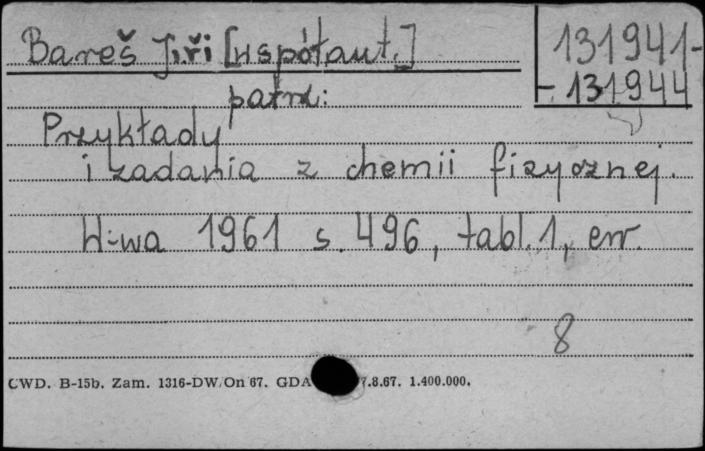 Bareš Jiři [współaut.]
131941-
- 131944
patrz:
Przykłady
i zadania z chemii fizycznej.
W-wa 1961 s. 496, tabl. 1, err.
8
CWD. B-15b. Zam. 1316-DW/On 67. GDA 7.8.67. 1.400.000.